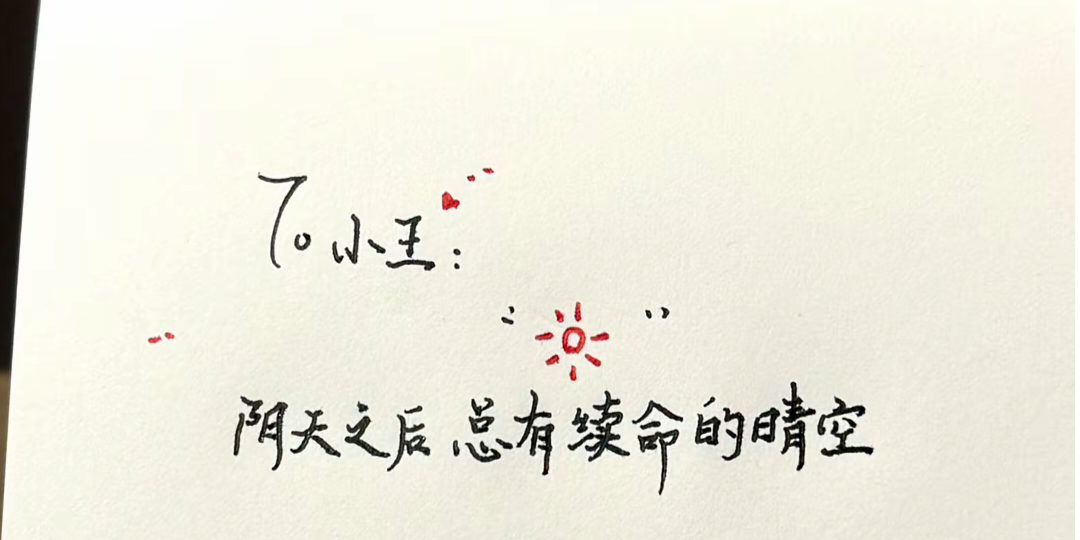 To 小王：
阴天之后总有续命的晴空